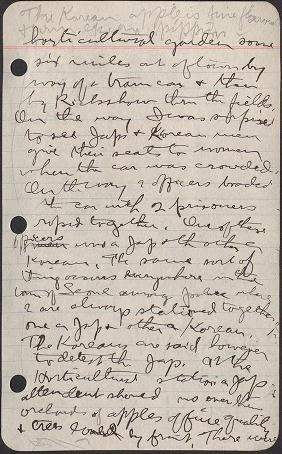 The Korean apple is fine flavor
horticultural garden some
six miles out of town by
way of a tram car & then
by Rickshaw thru the fields.
On the way I was surprised
to see Japs & Korean men
give their seats to women
when the car was crowded.
On the way 2 officers boarded
car with 2 prisoners
roped together. One of these
officers was a Jap & the other a
Korean. The same sort of
thing occurs everywhere in the
town of Seoul among police
2 are always stationed together,
one a Jap & other a Korean.
The Koreans are said however
to detest the Jap. At the
Horticultural station a Jap
attendant showed us over the
orchards of apples of fine quality
& trees loaded by fruit. There were